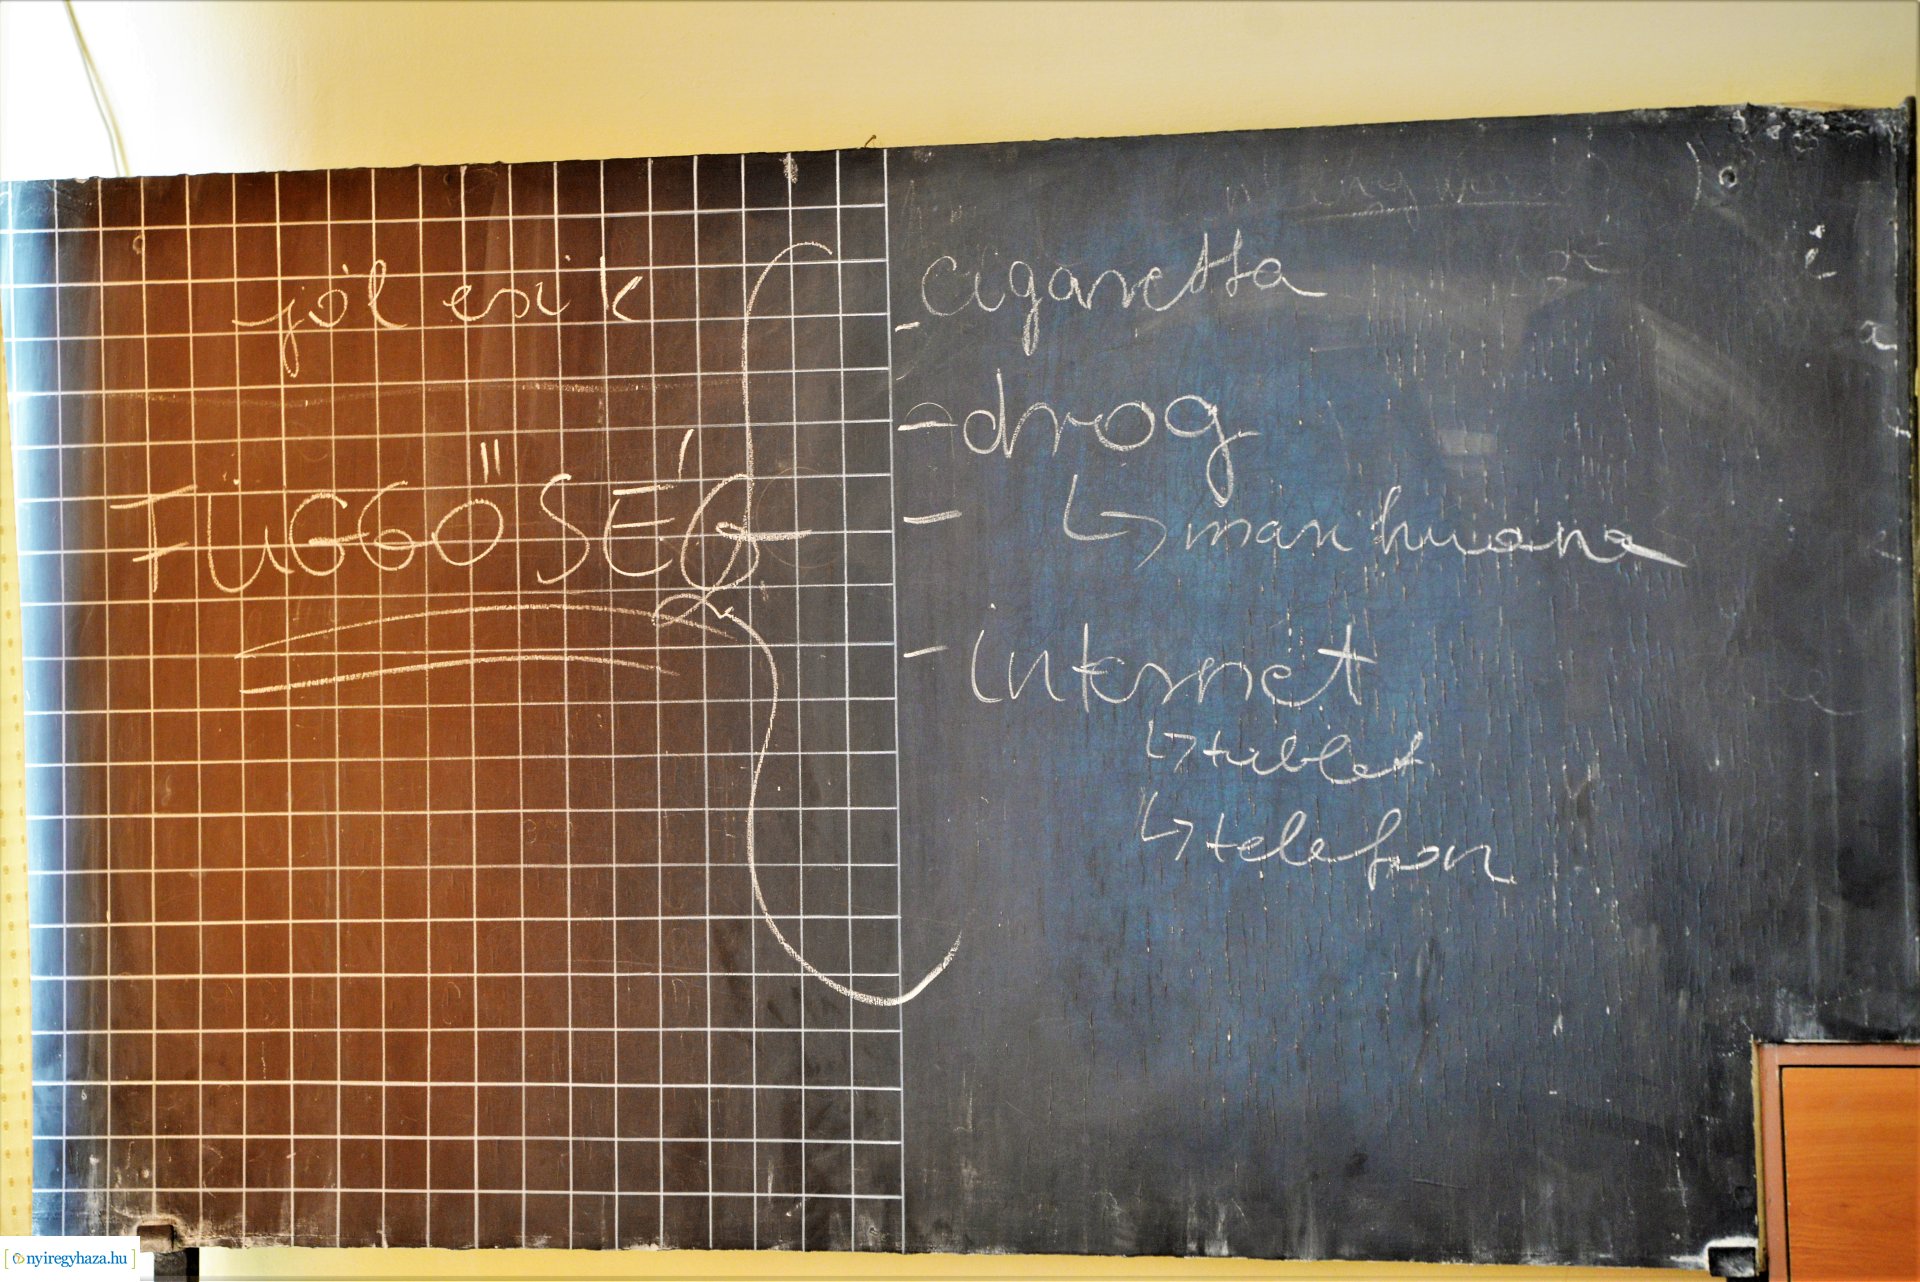 jól esik
FÜGGŐSÉG
- cigaretta
- drog
- ↳ marihuana
- internet
↳ tablet
↳ telefon
nyiregyhaza.hu